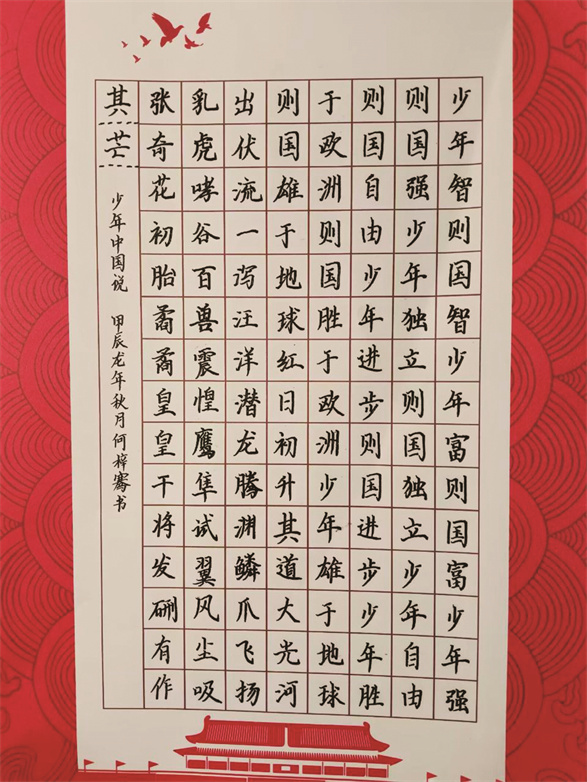 少年智则国智少年富则国富少年强
则国强少年独立则国独立少年自由
则国自由少年进步则国进步少年胜
于欧洲则国胜于欧洲少年雄于地球
则国雄于地球红日初升其道大光河
出伏流一泻汪洋潜龙腾渊鳞爪飞扬
乳虎哮谷百兽震惶鹰隼试翼风尘吸
张奇花初胎矞矞皇皇干将发硎有作
其芒
少年中国说 甲辰龙年秋月何梓骞书